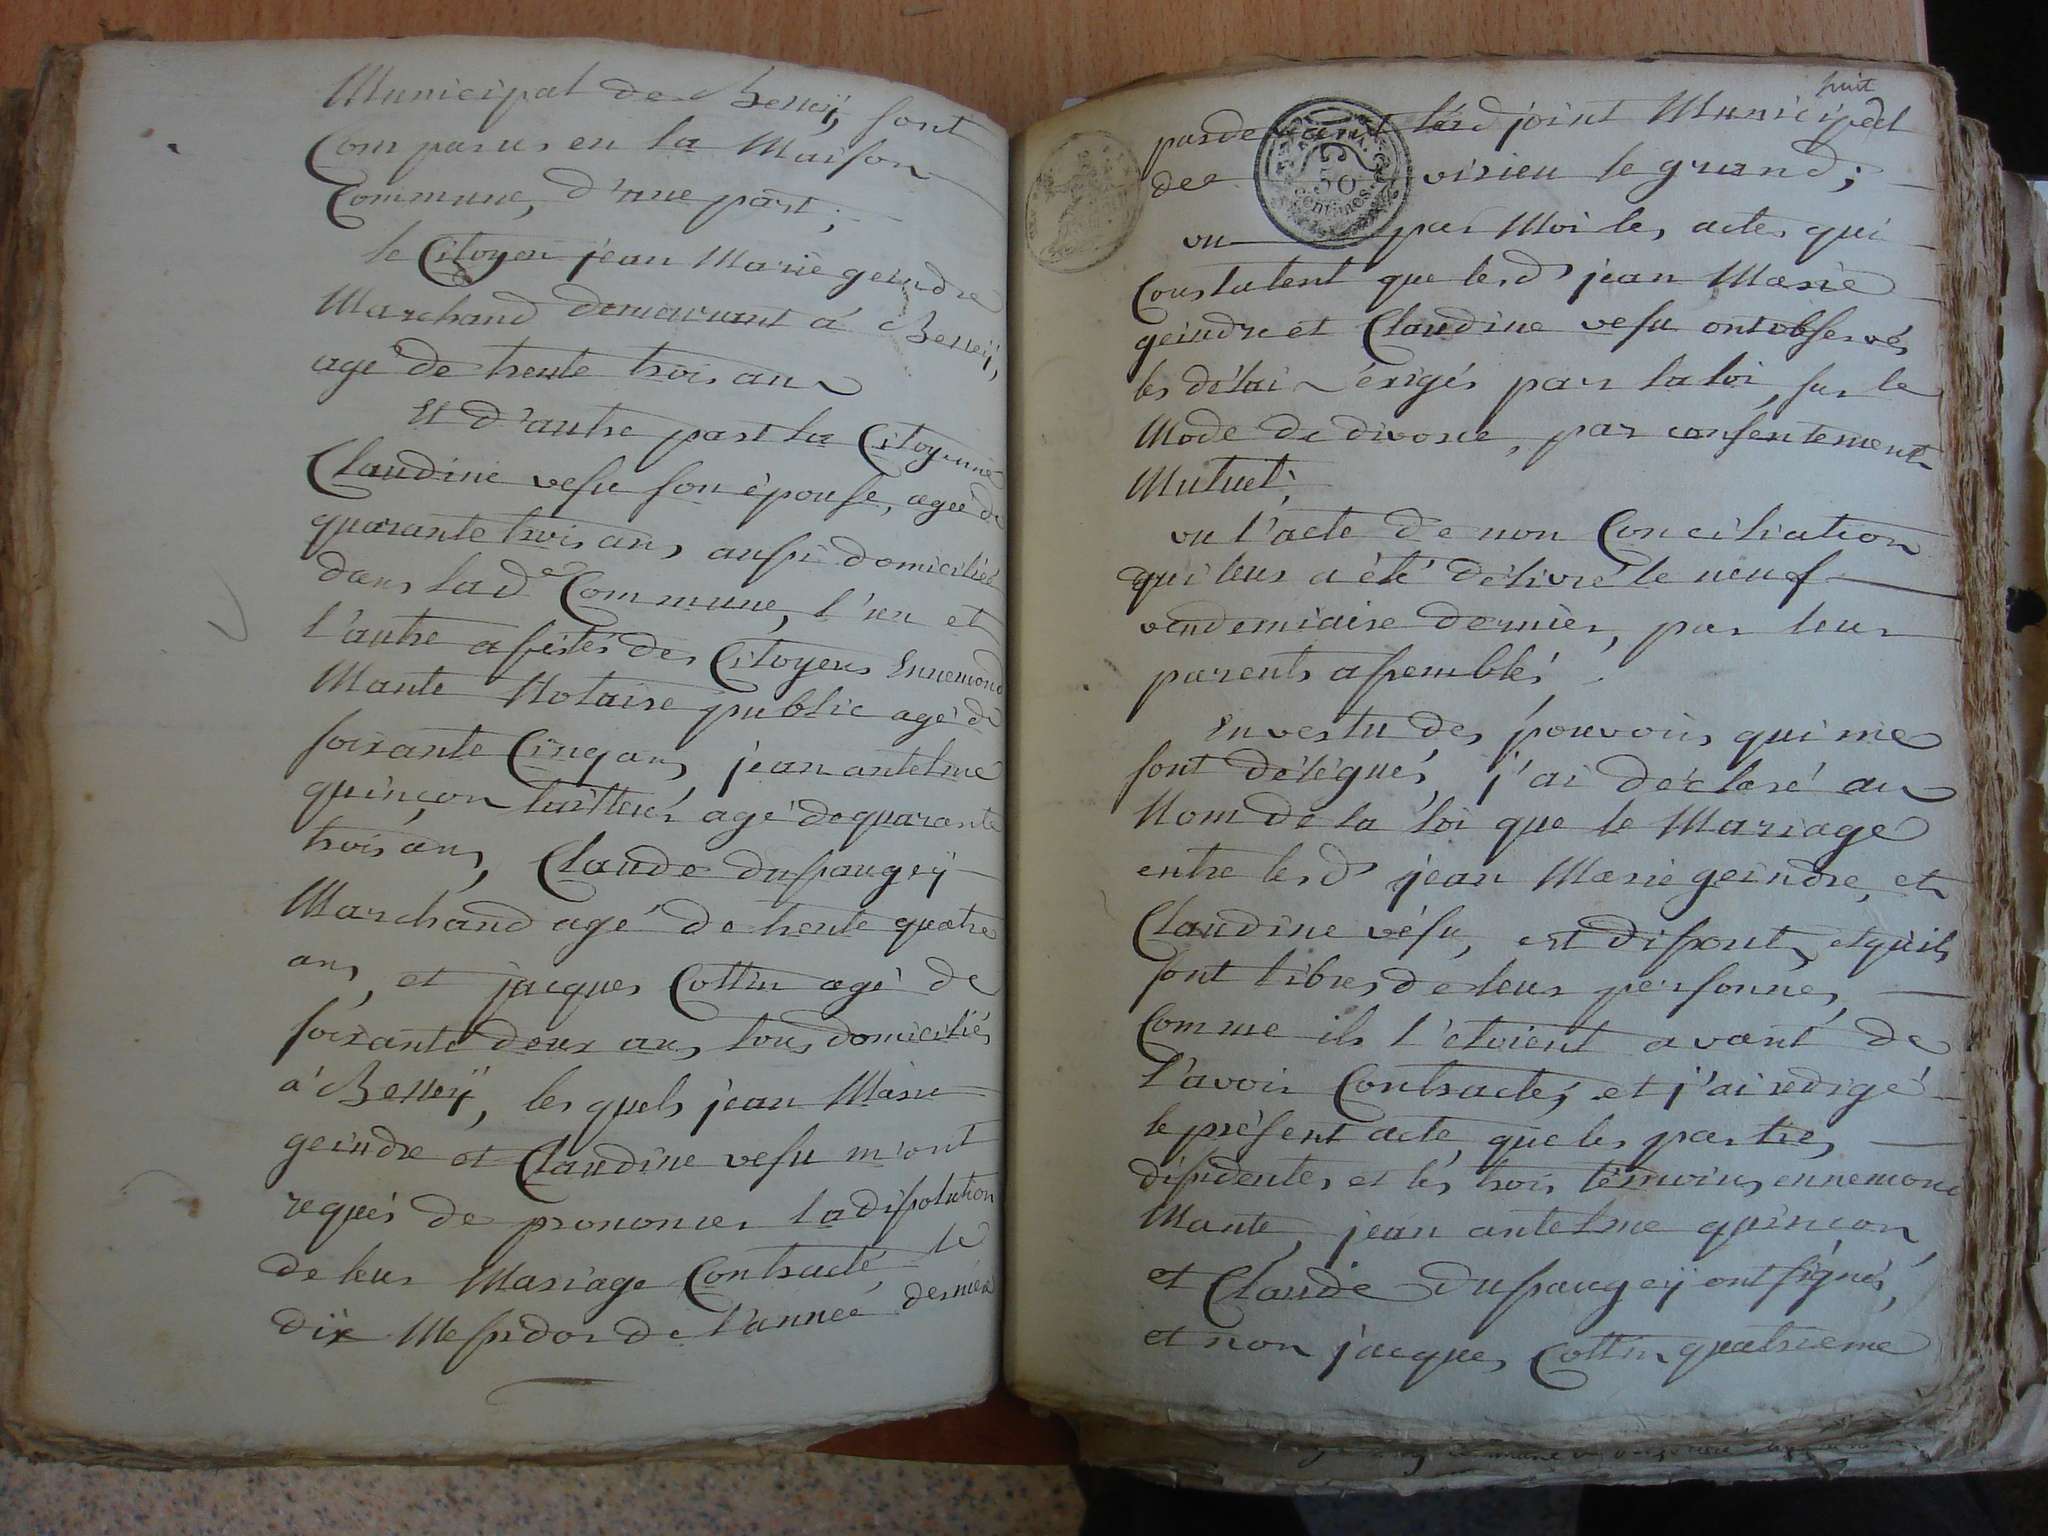 Municipal de Belleÿ, sont
Comparus en la Maison
Commune, d'une part;
le Citoyen jean Marie geindre
Marchand demeurant á Belleÿ,
agé de trente trois ans
Et d'autre part la Citoyenne
Claudine vesu son épouse, agée de
quarante trois ans, aussi domiciliée
dans lad.e Commune, l'un et
l'autre assistés des Citoyens Ennemond
Mante Notaire public agé de
soixante Cinq ans, jean antelme
quinçon tailleur agé de quarante
trois ans, Claude dussaugeÿ
Marchand agé de trente quatre
ans, et jacques Cottin agé de
soixante deux ans, tous domiciliés
á Belleÿ, les quels jean Marie
geindre et Claudine vesu m'ont
requis de prononcer la dissolution
de leur Mariage Contracté, le
dix Messidor de l'année derniere
huit
pardevant l'adjoint Municipal
de virieu le grand;
vu par Moi les actes qui
Constatent que lesd. jean Marie
geindre et Claudine vesu ont observés
les délais éxigés par la loi, sur le
Mode de divorce, par consentement
Mutuel;
vu l'acte de non Conciliation
qui leur a été délivré le neuf
vendemiaire dernier, par leur
parents assemblés;
En vertu des pouvoirs qui me
sont délégués, j'ai déclaré au
Nom de la loi que le Mariage
entre lesd. jean Marie geindre, et
Claudine vésu, est dissout, et qu'ils
sont libres de leur personnes,
Comme ils l'etoient avant de
l'avoir Contracté, et j'ai redigé
le présent acte, que les parties
dissidentes, et les trois témoins, ennemond
Mante, jean antelme quinçon
et Claude dussaugeÿ ont signés,
et non jacques Cottin quatrieme
50
centimes.